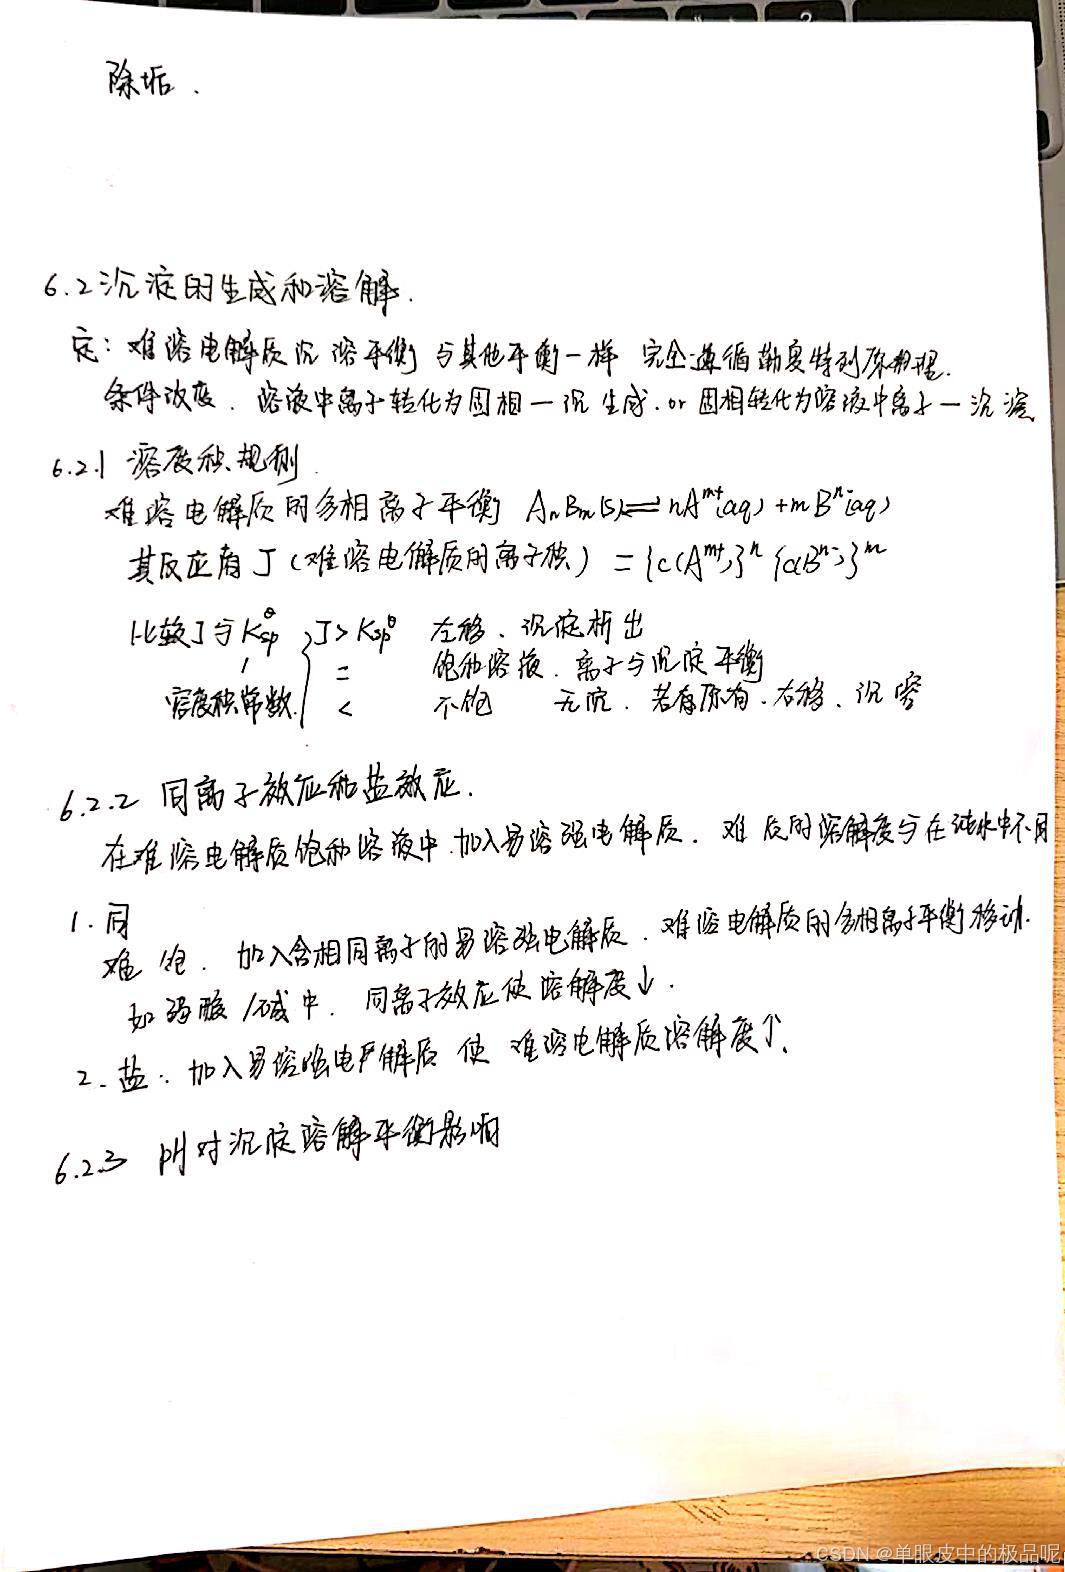 除垢.
6.2 沉淀的生成和溶解.
定: 难溶电解质沉溶平衡 与其他平衡一样 完全遵循勒夏特列原理.
条件改变. 溶液中离子转化为固相—沉生成. or 固相转化为溶液中离子—沉溶
6.2.1 溶度积规则.
难溶电解质的多相离子平衡 AnBm(s)⇌nA^m+(aq)+mB^n-(aq)
其反应商 J (难溶电解质的离子积) = {c(A^m+)}^n {c(B^n-)}^m
比较 J 与 Ksp^θ J>Ksp^θ 左移、沉淀析出
= 饱和溶液. 离子与沉淀平衡
溶度积常数. < 不饱 无沉. 若有原有. 右移、沉溶
6.2.2 同离子效应和盐效应.
在难溶电解质饱和溶液中.加入易溶强电解质. 难 质的溶解度与在纯水中不同
1. 同
难 饱. 加入含相同离子的易溶强电解质. 难溶电解质的多相离子平衡移动.
如强酸/碱中. 同离子效应使溶解度↓.
2. 盐: 加入易溶强电解质 使 难溶电解质溶解度↑.
6.2.3 pH对沉淀溶解平衡影响
CSDN @单眼皮中的极品呢